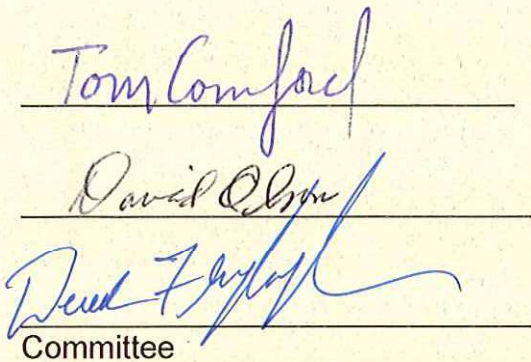 Tom Comford
David Olson
Derek
Committee